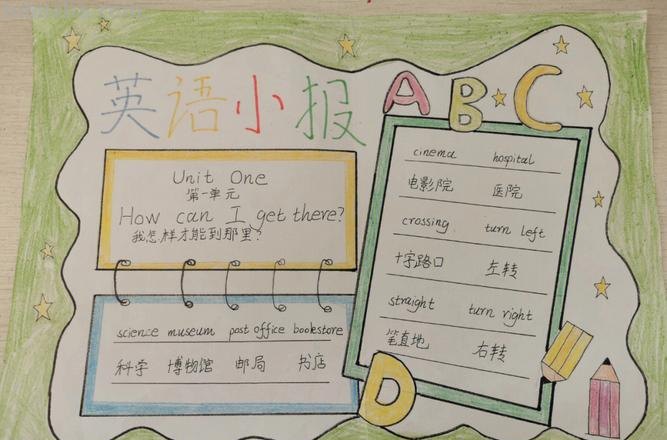 英语小报
ABC
Unit One
第一单元
How can I get there?
我怎样才能到那里?
science museum post office bookstore
科学 博物馆 邮局 书店
cinema hospital
电影院 医院
crossing turn left
十字路口 左转
straight turn right
笔直地 右转
D